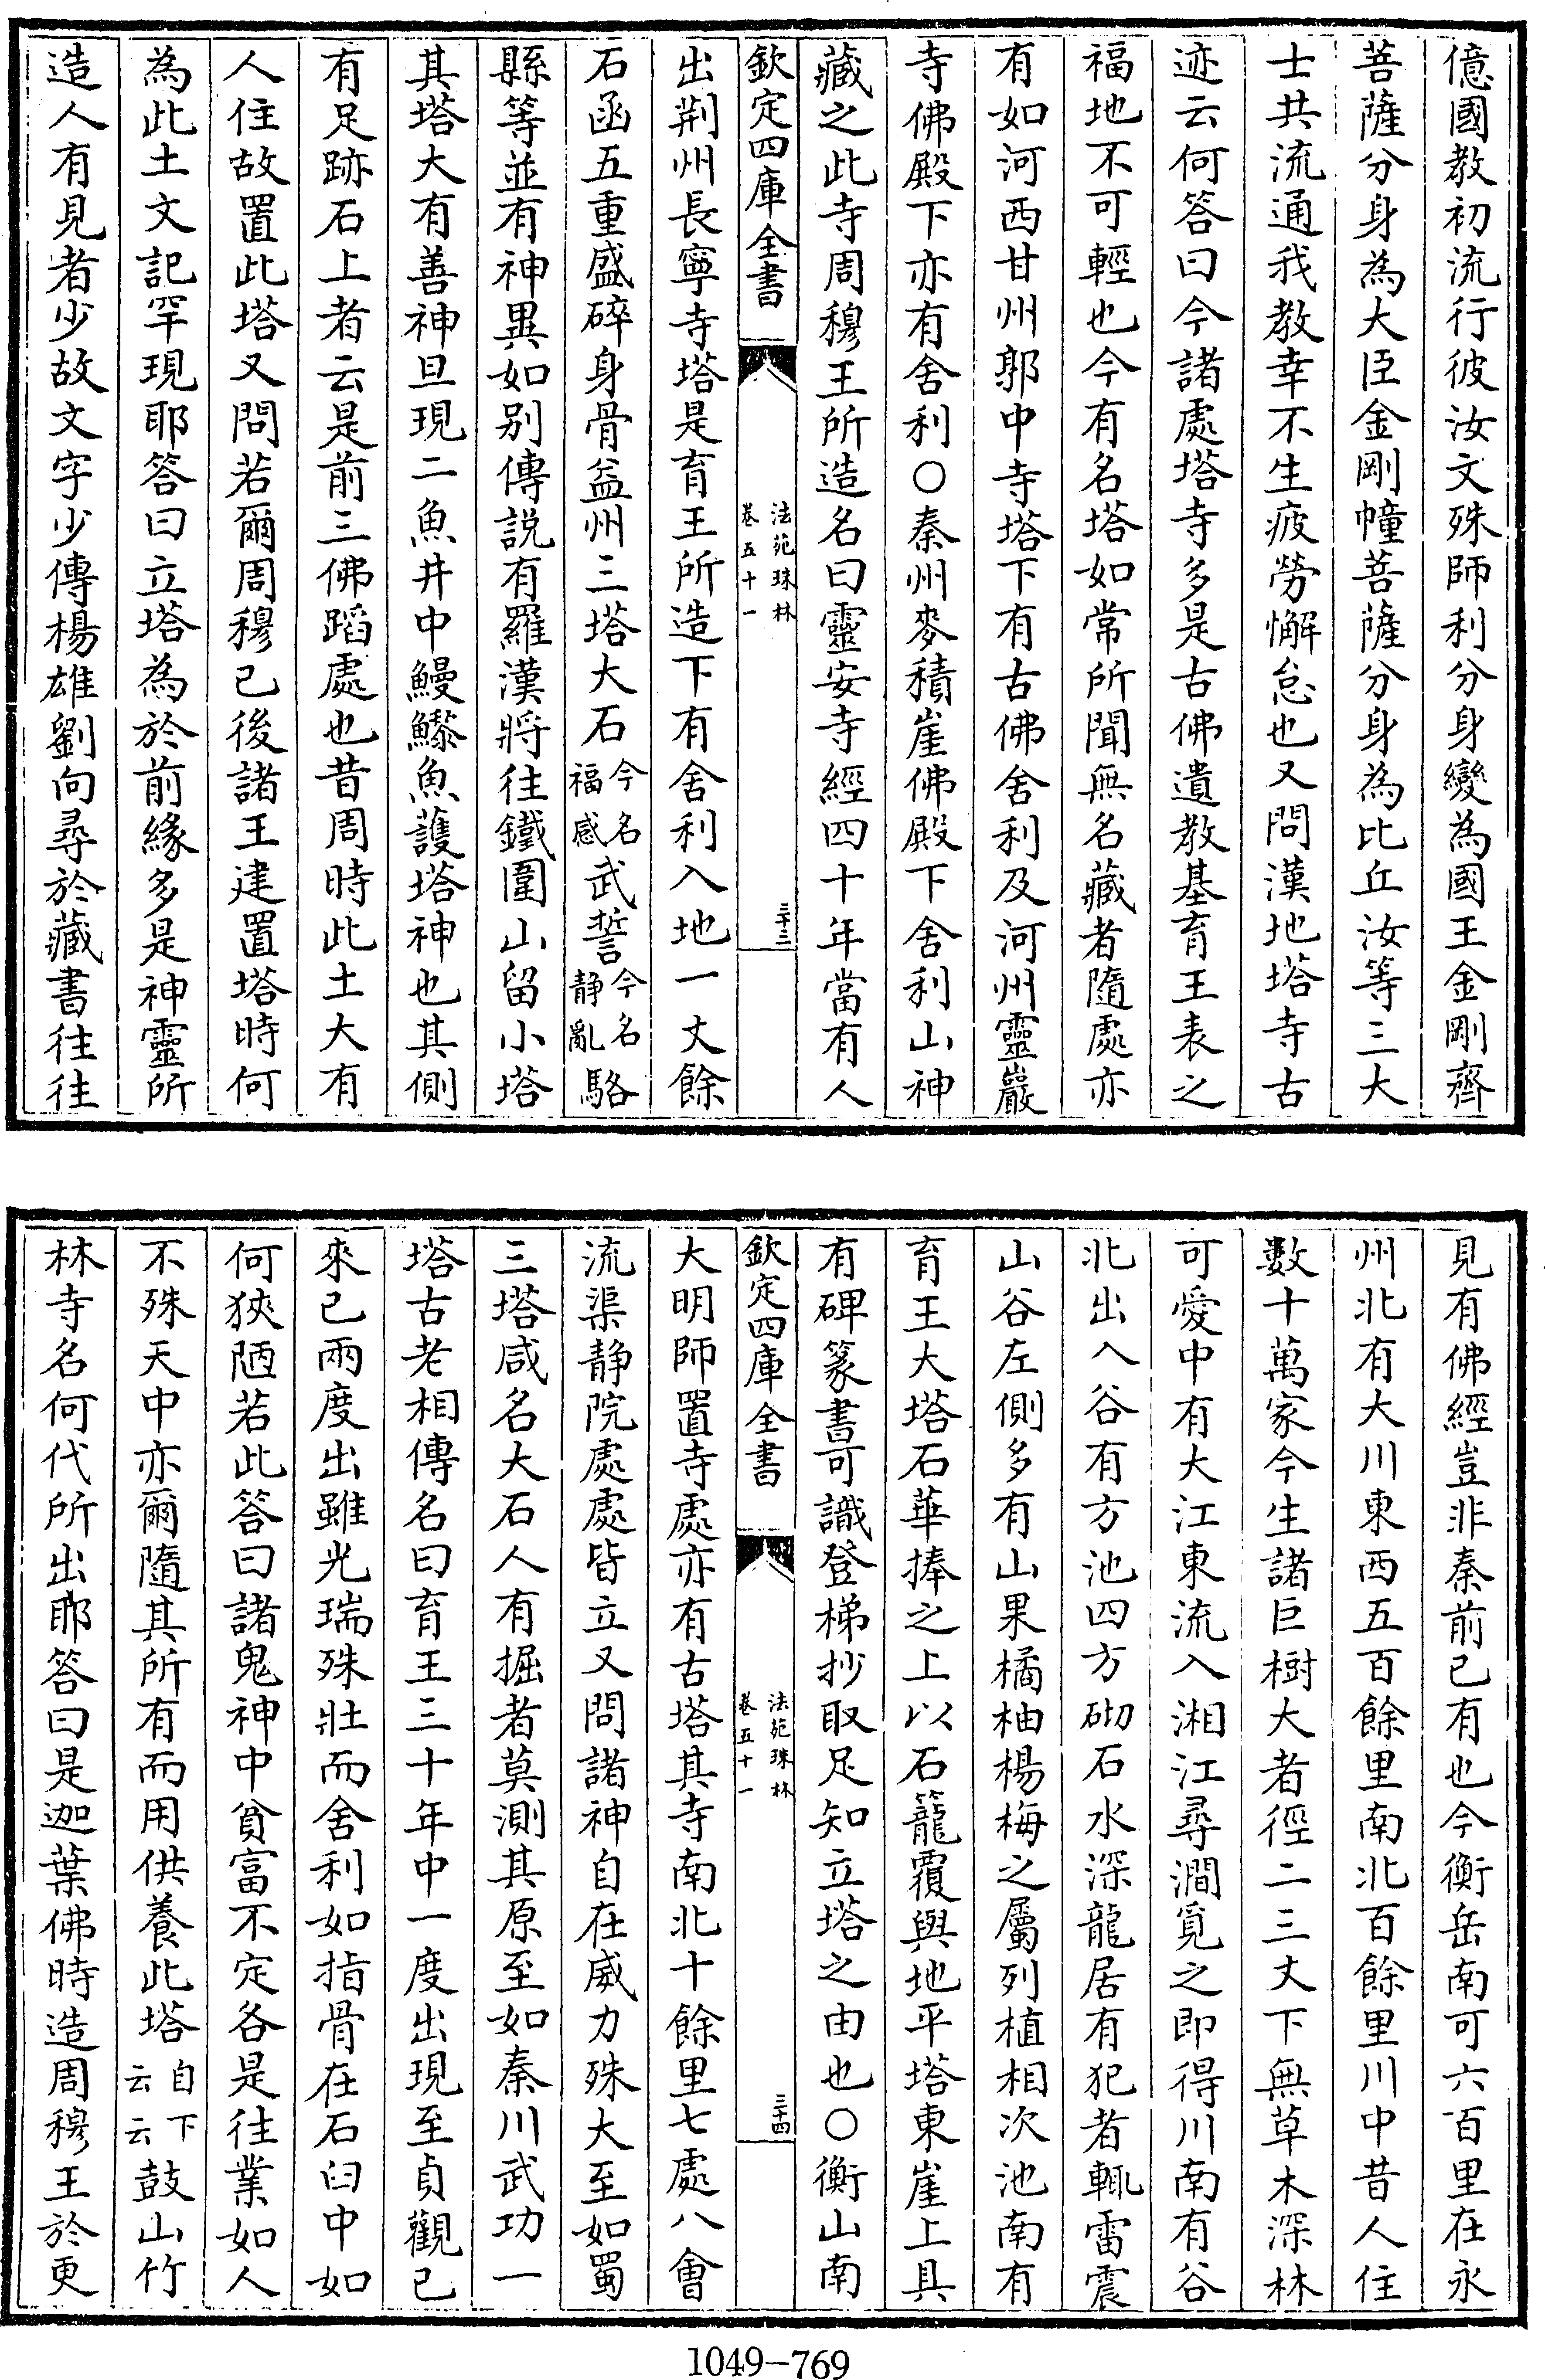 億國教初流行彼汝文殊師利分身變為國王金剛齊
菩薩分身為大臣金剛幢菩薩分身為比丘汝等三大
士共流通我教幸不生疲勞懈怠也又問漢地塔寺古
迹云何答曰今諸處塔寺多是古佛遺教基育王表之
福地不可輕也今有名塔如常所聞無名藏者隨處亦
有如河西甘州郭中寺塔下有古佛舍利及河州靈巖
寺佛殿下亦有舍利○秦州麥積崖佛殿下舍利山神
藏之此寺周穆王所造名曰靈安寺經四十年當有人
欽定四庫全書
法苑珠林
卷五十一
三十三
出荆州長寧寺塔是育王所造下有舍利入地一丈餘
石函五重盛碎身骨益州三塔大石今名福感武誓今名静亂駱
縣等並有神異如别傳説有羅漢將往鐵圍山留小塔
其塔大有善神旦現二魚井中鰻鱺魚護塔神也其側
有足跡石上者云是前三佛蹈處也昔周時此土大有
人住故置此塔又問若爾周穆已後諸王建置塔時何
為此土文記罕現耶答曰立塔為於前緣多是神靈所
造人有見者少故文字少傳楊雄劉向尋於藏書往往
見有佛經豈非秦前已有也今衡岳南可六百里在永
州北有大川東西五百餘里南北百餘里川中昔人住
數十萬家今生諸巨樹大者徑二三丈下無草木深林
可愛中有大江東流入湘江尋澗覓之即得川南有谷
北出入谷有方池四方砌石水深龍居有犯者輒雷震
山谷左側多有山果橘柚楊梅之屬列植相次池南有
育王大塔石華捧之上以石籠覆與地平塔東崖上具
有碑篆書可識登梯抄取足知立塔之由也○衡山南
欽定四庫全書
法苑珠林
卷五十一
三十四
大明師置寺處亦有古塔其寺南北十餘里七處八會
流渠静院處處皆立又問諸神自在威力殊大至如蜀
三塔咸名大石人有掘者莫測其原至如秦川武功一
塔古老相傳名曰育王三十年中一度出現至貞觀已
來已兩度出雖光瑞殊壯而舍利如指骨在石臼中如
何狹陋若此答曰諸鬼神中貧富不定各是往業如人
不殊天中亦爾隨其所有而用供養此塔自下云云鼓山竹
林寺名何代所出耶答曰是迦葉佛時造周穆王於更
1049-769